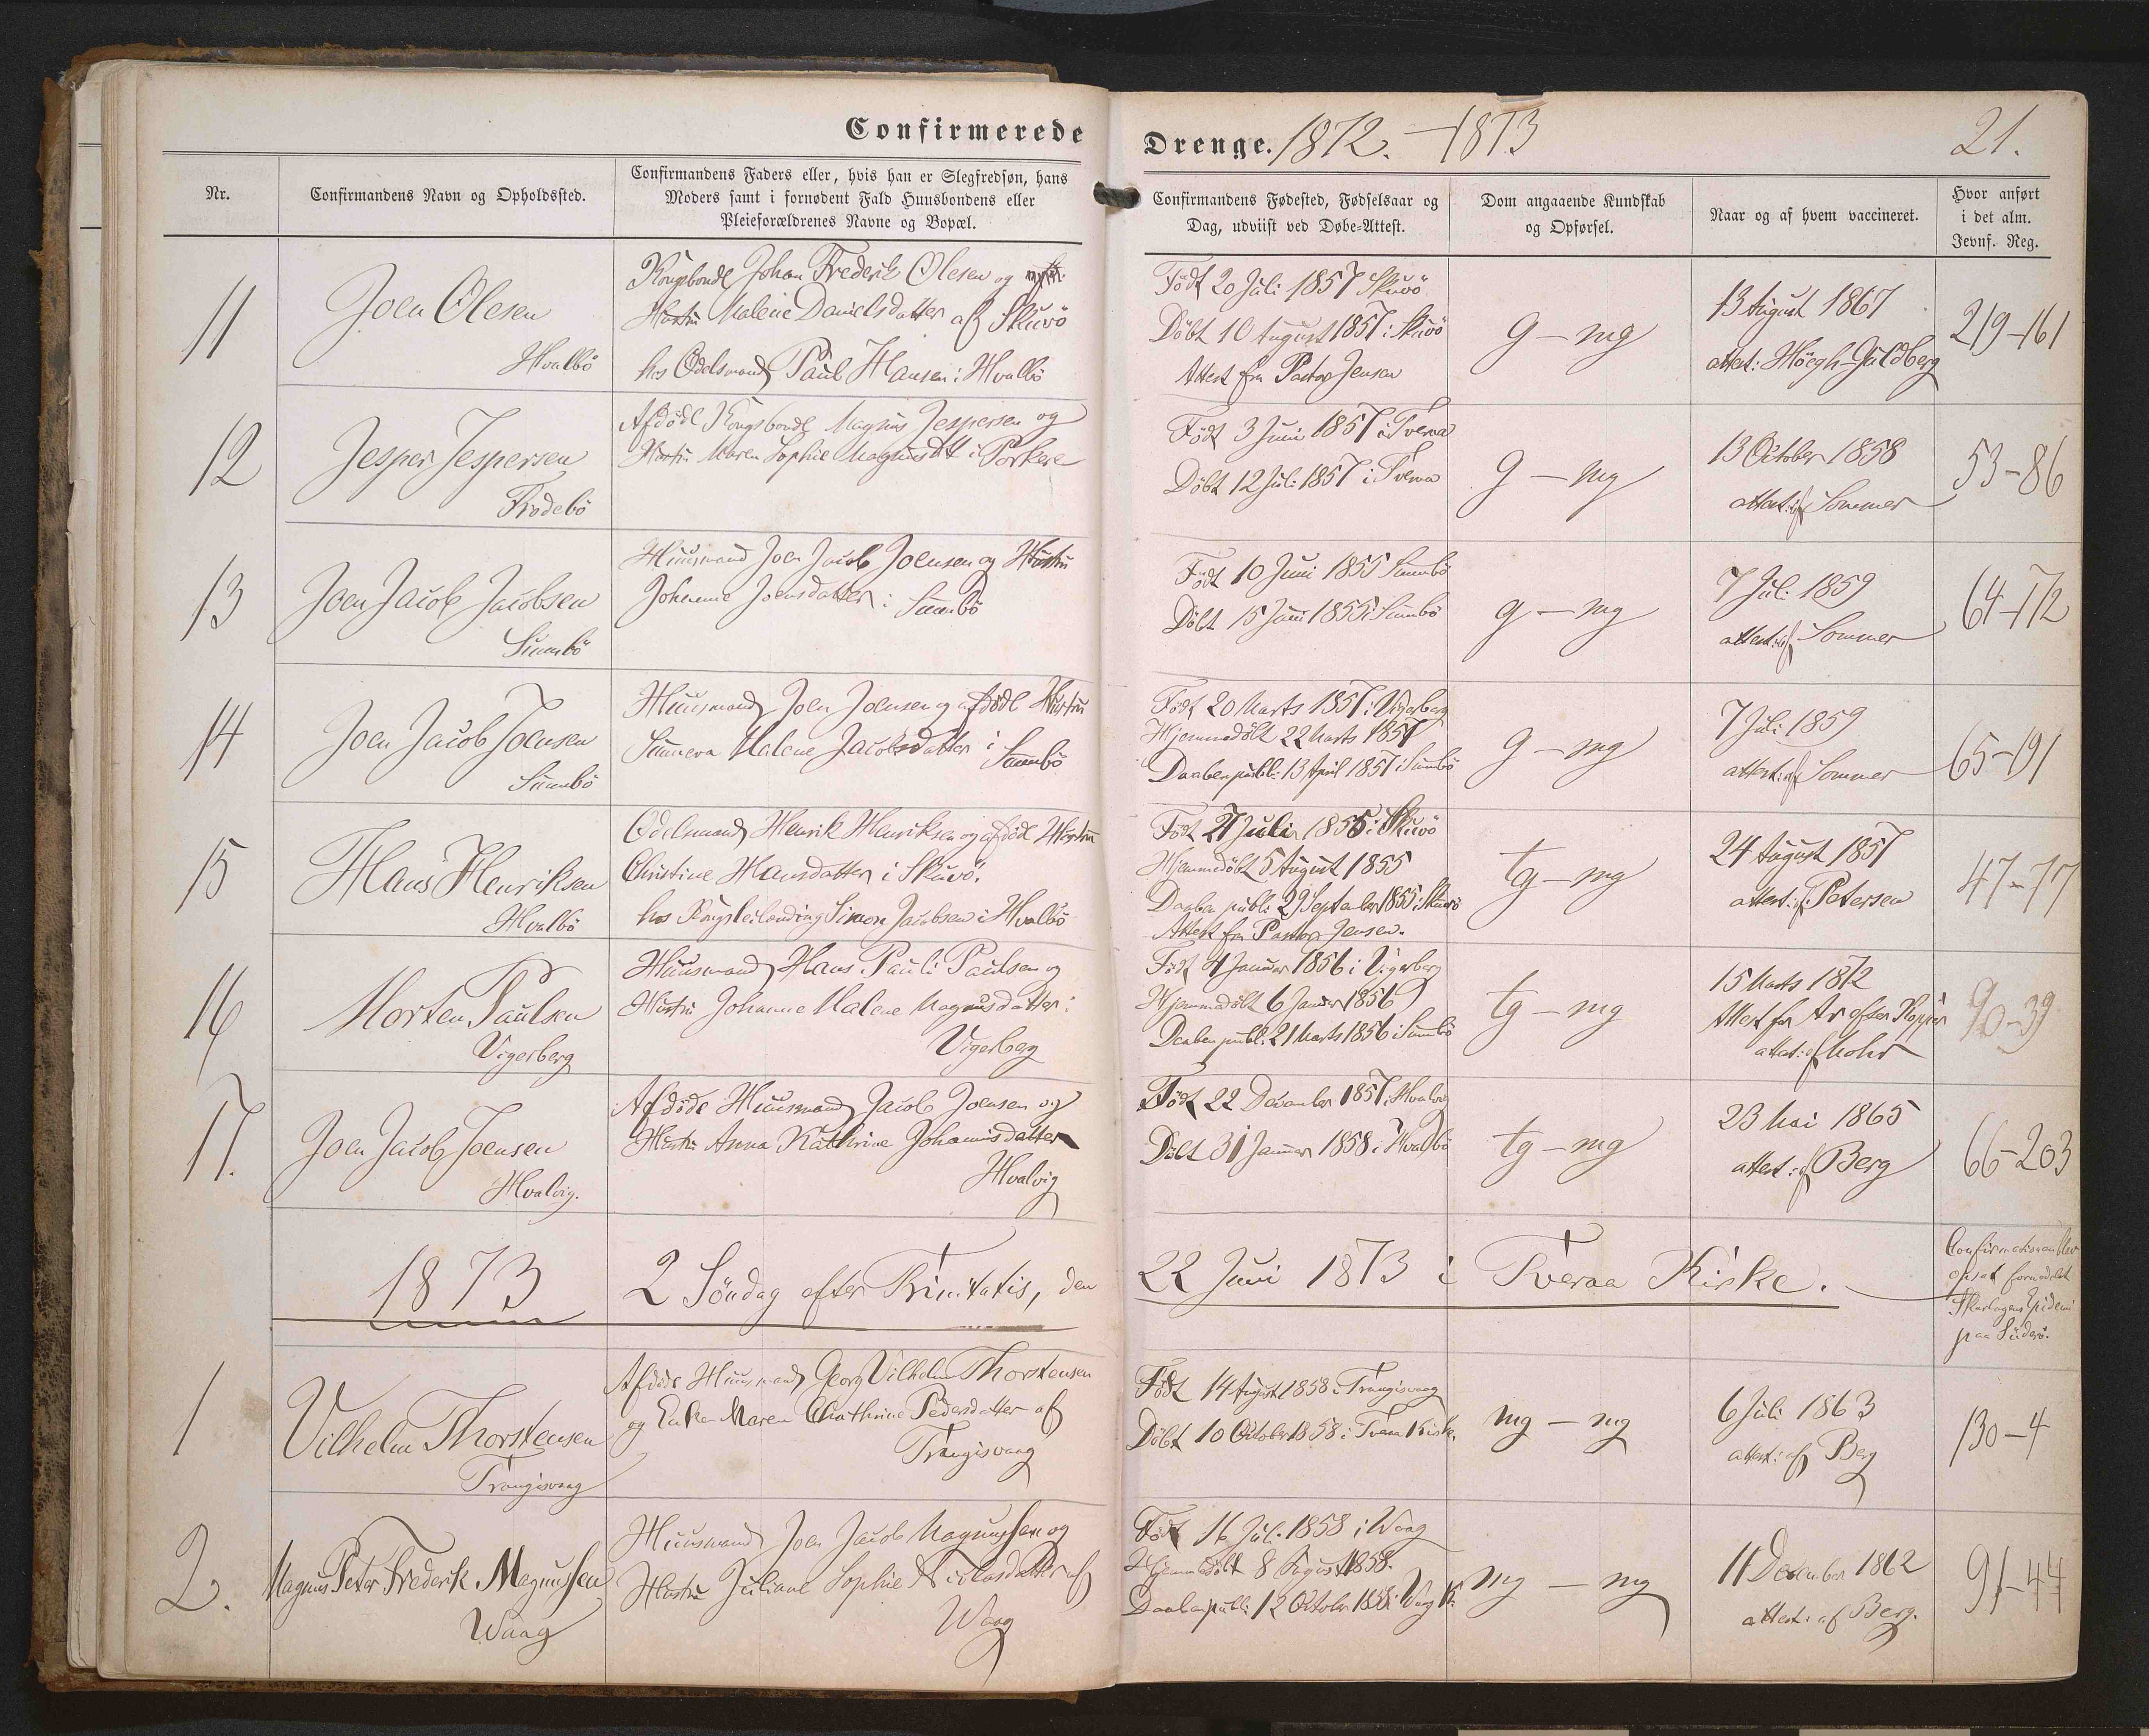 Confirmerede
Drenge. 1872. - 1873
21.
Nr.
Confirmandens Navn og Opholdssted.
Confirmandens Faders eller, hvis han er Slegfredsøn, hans
Moders samt i fornødent Fald Huusbondens eller
Pleieforældrenes Navne og Bopæl.
Confirmandens Fødested, Fødselsaar og
Dag, udviist ved Døbe-Attest.
Dom angaaende Kundskab
og Opførsel.
Naar og af hvem vaccineret.
Hvor anført
i det alm.
Jevnf. Reg.
11
Joen Olesen
Hvalbö
Kongsbonde Johan Frederik Olesen og
Hustru Malene Danielsdatter af Skuvö
hos Odelsmand Paul Hansen i Hvalbö
Född 20 Juli 1857 Skuvö
Döbt 10 August 1857 i Skuvö
Attest fra Pastor Jensen
g - mg
13 August 1867
attest: Höegh-Guldberg
219-161
12
Jesper Jespersen
Frodebö
Afdöde Kongsbonde Magnus Jespersen og
Hustru Maren Sophie Magnusdtt i Porkere
Född 3 Juni 1857 i Tveraa
Döbt 12 Juli 1857 i Tveraa
g - mg
13 October 1858
attest: af Sommer
53-86
13
Joen Jacob Jacobsen
Sumbö
Huusmand Joen Jacob Joensen og Hustru
Johanne Joensdatter i Sumbö
Född 10 Juni 1855 Sumbö
Döbt 15 Juni 1855 i Sumbö
g - mg
7 Juli 1859
attest: af Sommer
64-172
14
Joen Jacob Joensen
Sumbö
Huusmand Joen Joensen og afdöde Hustru
Sunneva Malene Jacobsdatter i
Sumbö
Född 20 Marts 1857 i Vigerberg
Hjemmedöbt 22 Marts 1857
Daaben publ: 13 April 1857 i Sumbö
g - mg
7 Juli 1859
attest: af Sommer
65-191
15
Hans Henriksen
Hvalbö
Odelsmand Henrik Henriksen og afdöde Hustru
Christine Hansdatter i Skuvö.
hos Kongsleilænding Simon Jacobsen i Hvalbö
Född 27 Juli 1855 i Skuvö
Hjemmedöbt 5 August 1855
Daaben publ: 29 September 1855 i Skuvö
Attest fra Pastor Jensen.
tg - mg
24 August 1857
attest: af Petersen
47-77
16
Morten Paulsen
Vigerberg
Huusmand Hans Pauli Paulsen og
Hustru Johanne Malene Magnusdatter i
Vigerberg
Född 4 Januar 1856 i Vigerberg
Hjemmedöbt 6 Januar 1856
Daaben publ: 21 Marts 1856 i Sumbö
tg - mg
15 Marts 1872
Attest for Ar efter Kopper
attest: af Mohr
90-39
17.
Joen Jacob Joensen
Hvalvig.
Afdöde Huusmand Jacob Joensen og
Hustru Anna Kathrine Johannisdatter
Hvalvig
Född 22 December 1857 i Hvalvig
Döbt 31 Januar 1858 i Hvalbö
tg - mg
23 Mai 1865
attest: af Berg
66-203
1873
2 Söndag efter Trinitatis, den
22 Juni 1873 i Tveraa Kirke.
Confirmationen blev
opsat formedelst
Skarlagens Epidemi
paa Suderö.
1
Vilhelm Thorstensen
Trangisvaag
Afdöde Huusmand Georg Vilhelm Thorstensen
og Enke Maren Chathrine Pedersdatter af
Trangisvaag
Född 14 August 1858 i Trangisvaag
Döbt 10 October 1858 i Tveraa Kirke.
mg - mg
6 Juli 1863
attest: af Berg
130-4
2.
Magnus Peter Frederik Magnussen
Waag
Huusmand Joen Jacob Magnussen og
Hustru Juliane Sophie Niclasdatter af
Waag
Född 16 Juli 1858 i Waag
Hjemmedöbt 8 August 1858.
Daaben publ: 12 October 1858 i Vaag K.
mg - mg
11 December 1862
attest: af Berg.
91-44